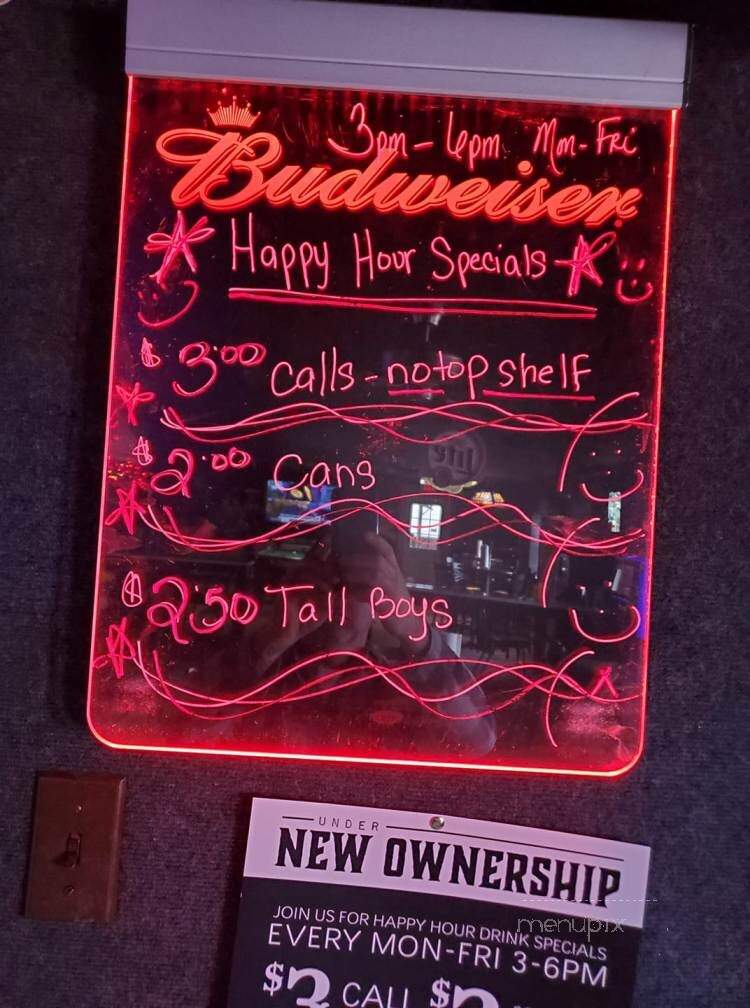 3pm - 6pm Mon-Fri
Budweiser
Happy Hour Specials
$3.00 Calls - no top shelf
$2.00 Cans
$2.50 Tall Boys
UNDER
NEW OWNERSHIP
JOIN US FOR HAPPY HOUR DRINK SPECIALS
EVERY MON-FRI 3-6PM
$3 CALL $2
menupix